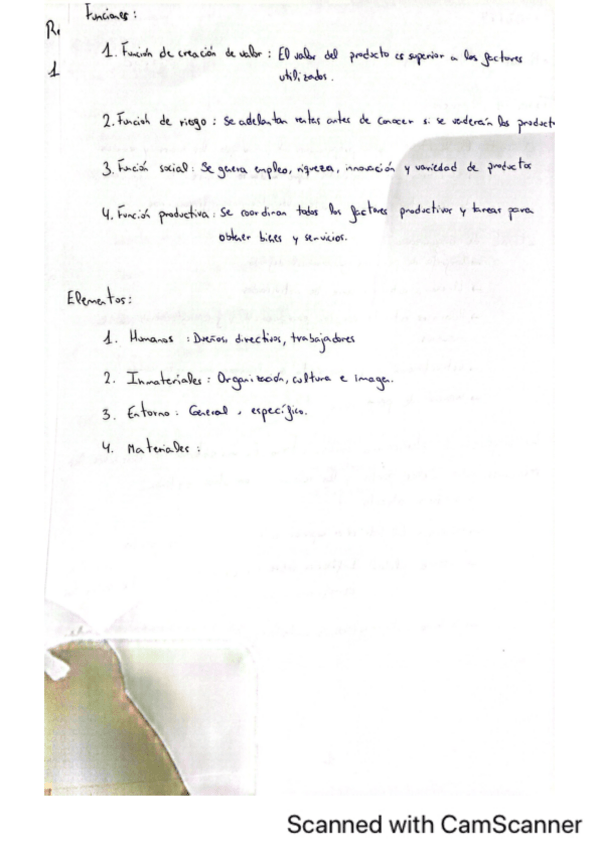 Funciones:
R
1
1. Función de creación de valor: El valor del producto es superior a los factores
utilizados.
2. Función de riesgo: Se adelantan rentas antes de conocer si se venderán los product
3. Función social: Se genera empleo, riqueza, innovación y variedad de productos
4. Función productiva: Se coordinan todos los factores productivos y tareas para
obtener bienes y servicios.
Elementos:
1. Humanos: Dueños, directivos, trabajadores
2. Inmateriales: Organización, cultura e imagen.
3. Entorno: General, específico.
4. Materiales:
Scanned with CamScanner